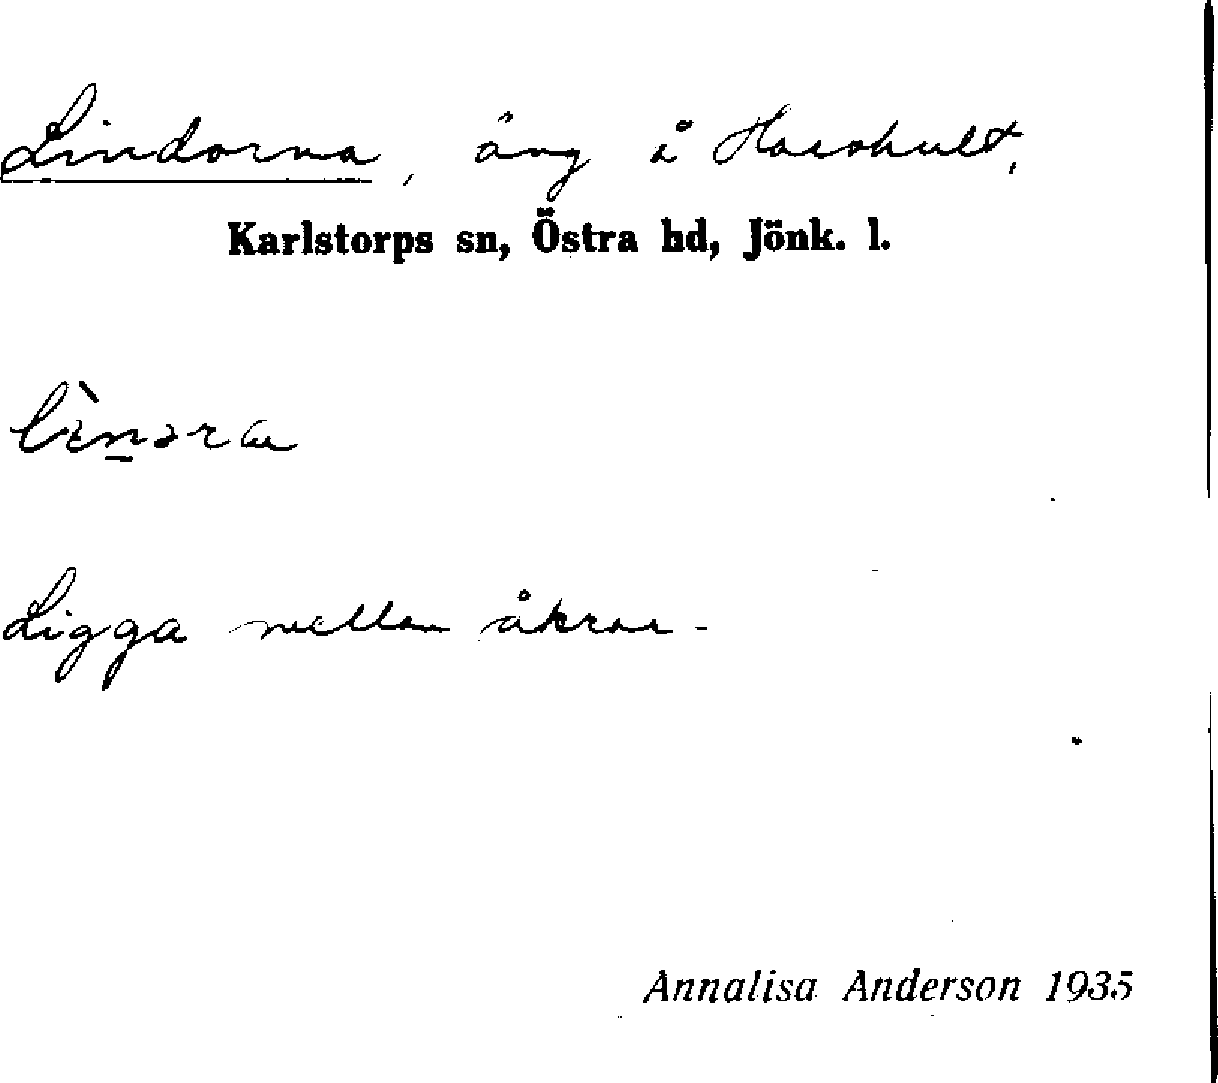 Lindorna, äng å Harahult.
Karlstorps sn, Östra hd, Jönk. l.
Ligga mellan åkrar.
Annalisa Anderson 1935